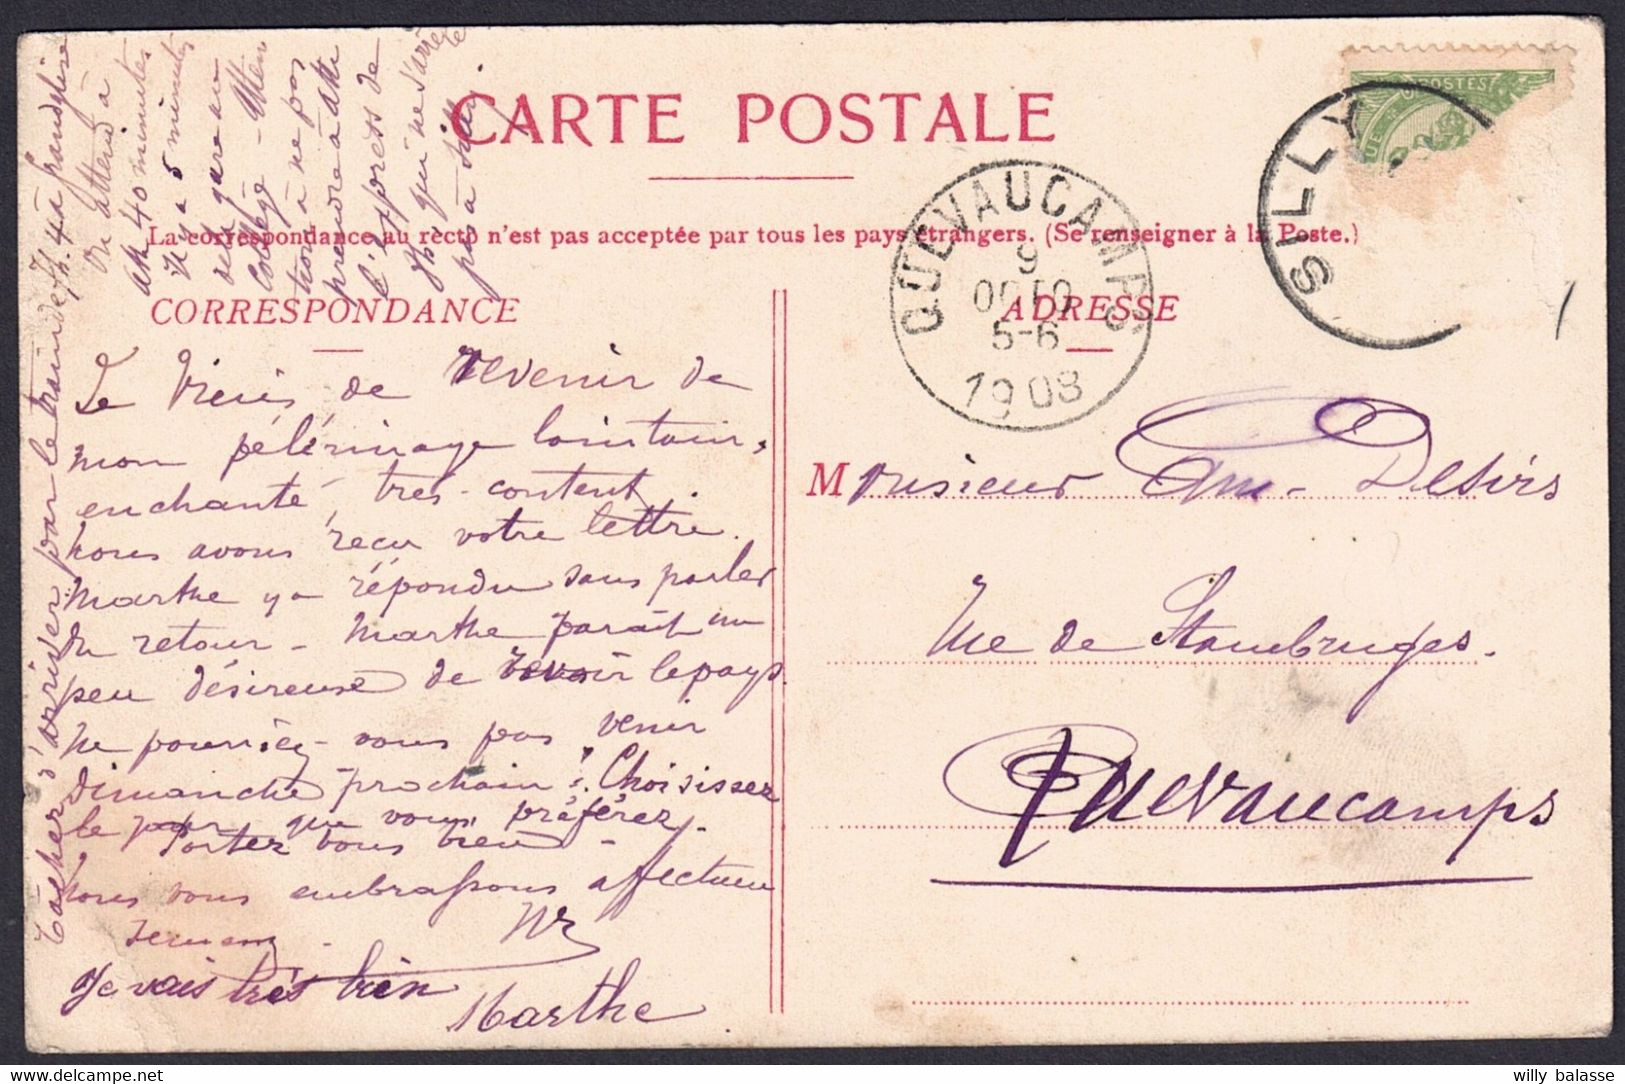 CARTE POSTALE
La correspondance au recto n'est pas acceptée par tous les pays étrangers. (Se renseigner à la Poste.)
CORRESPONDANCE
Je viens de revenir de
mon pélérinage lointain,
enchanté, très-content
nous avons reçu votre lettre.
Marthe y a répondu sans parler
du retour - Marthe parait un
peu désireuse de revoir le pays.
Ne pourriez-vous pas venir
Dimanche prochain? Choisissez
le jour que vous préférez.
Portez vous bien -
nous vous embrassons affectueu
sement -
Je vais très bien
Marthe
Tâcher d'arriver par le train de 7h. 4 à
On attend à
Ath 40 minutes
Il y a 5 minutes
de la gare au
Collège - Atten
tion à ne pas
prendre à Ath
l'express de
qui ne s'arrête
pas à Silly.
ADRESSE
QUEVAUCAMPS
9
OCTO
5-6
1908
SILLY
POSTES
Monsieur Desirs
Rue de Stambruges.
Quevaucamps
willy balasse